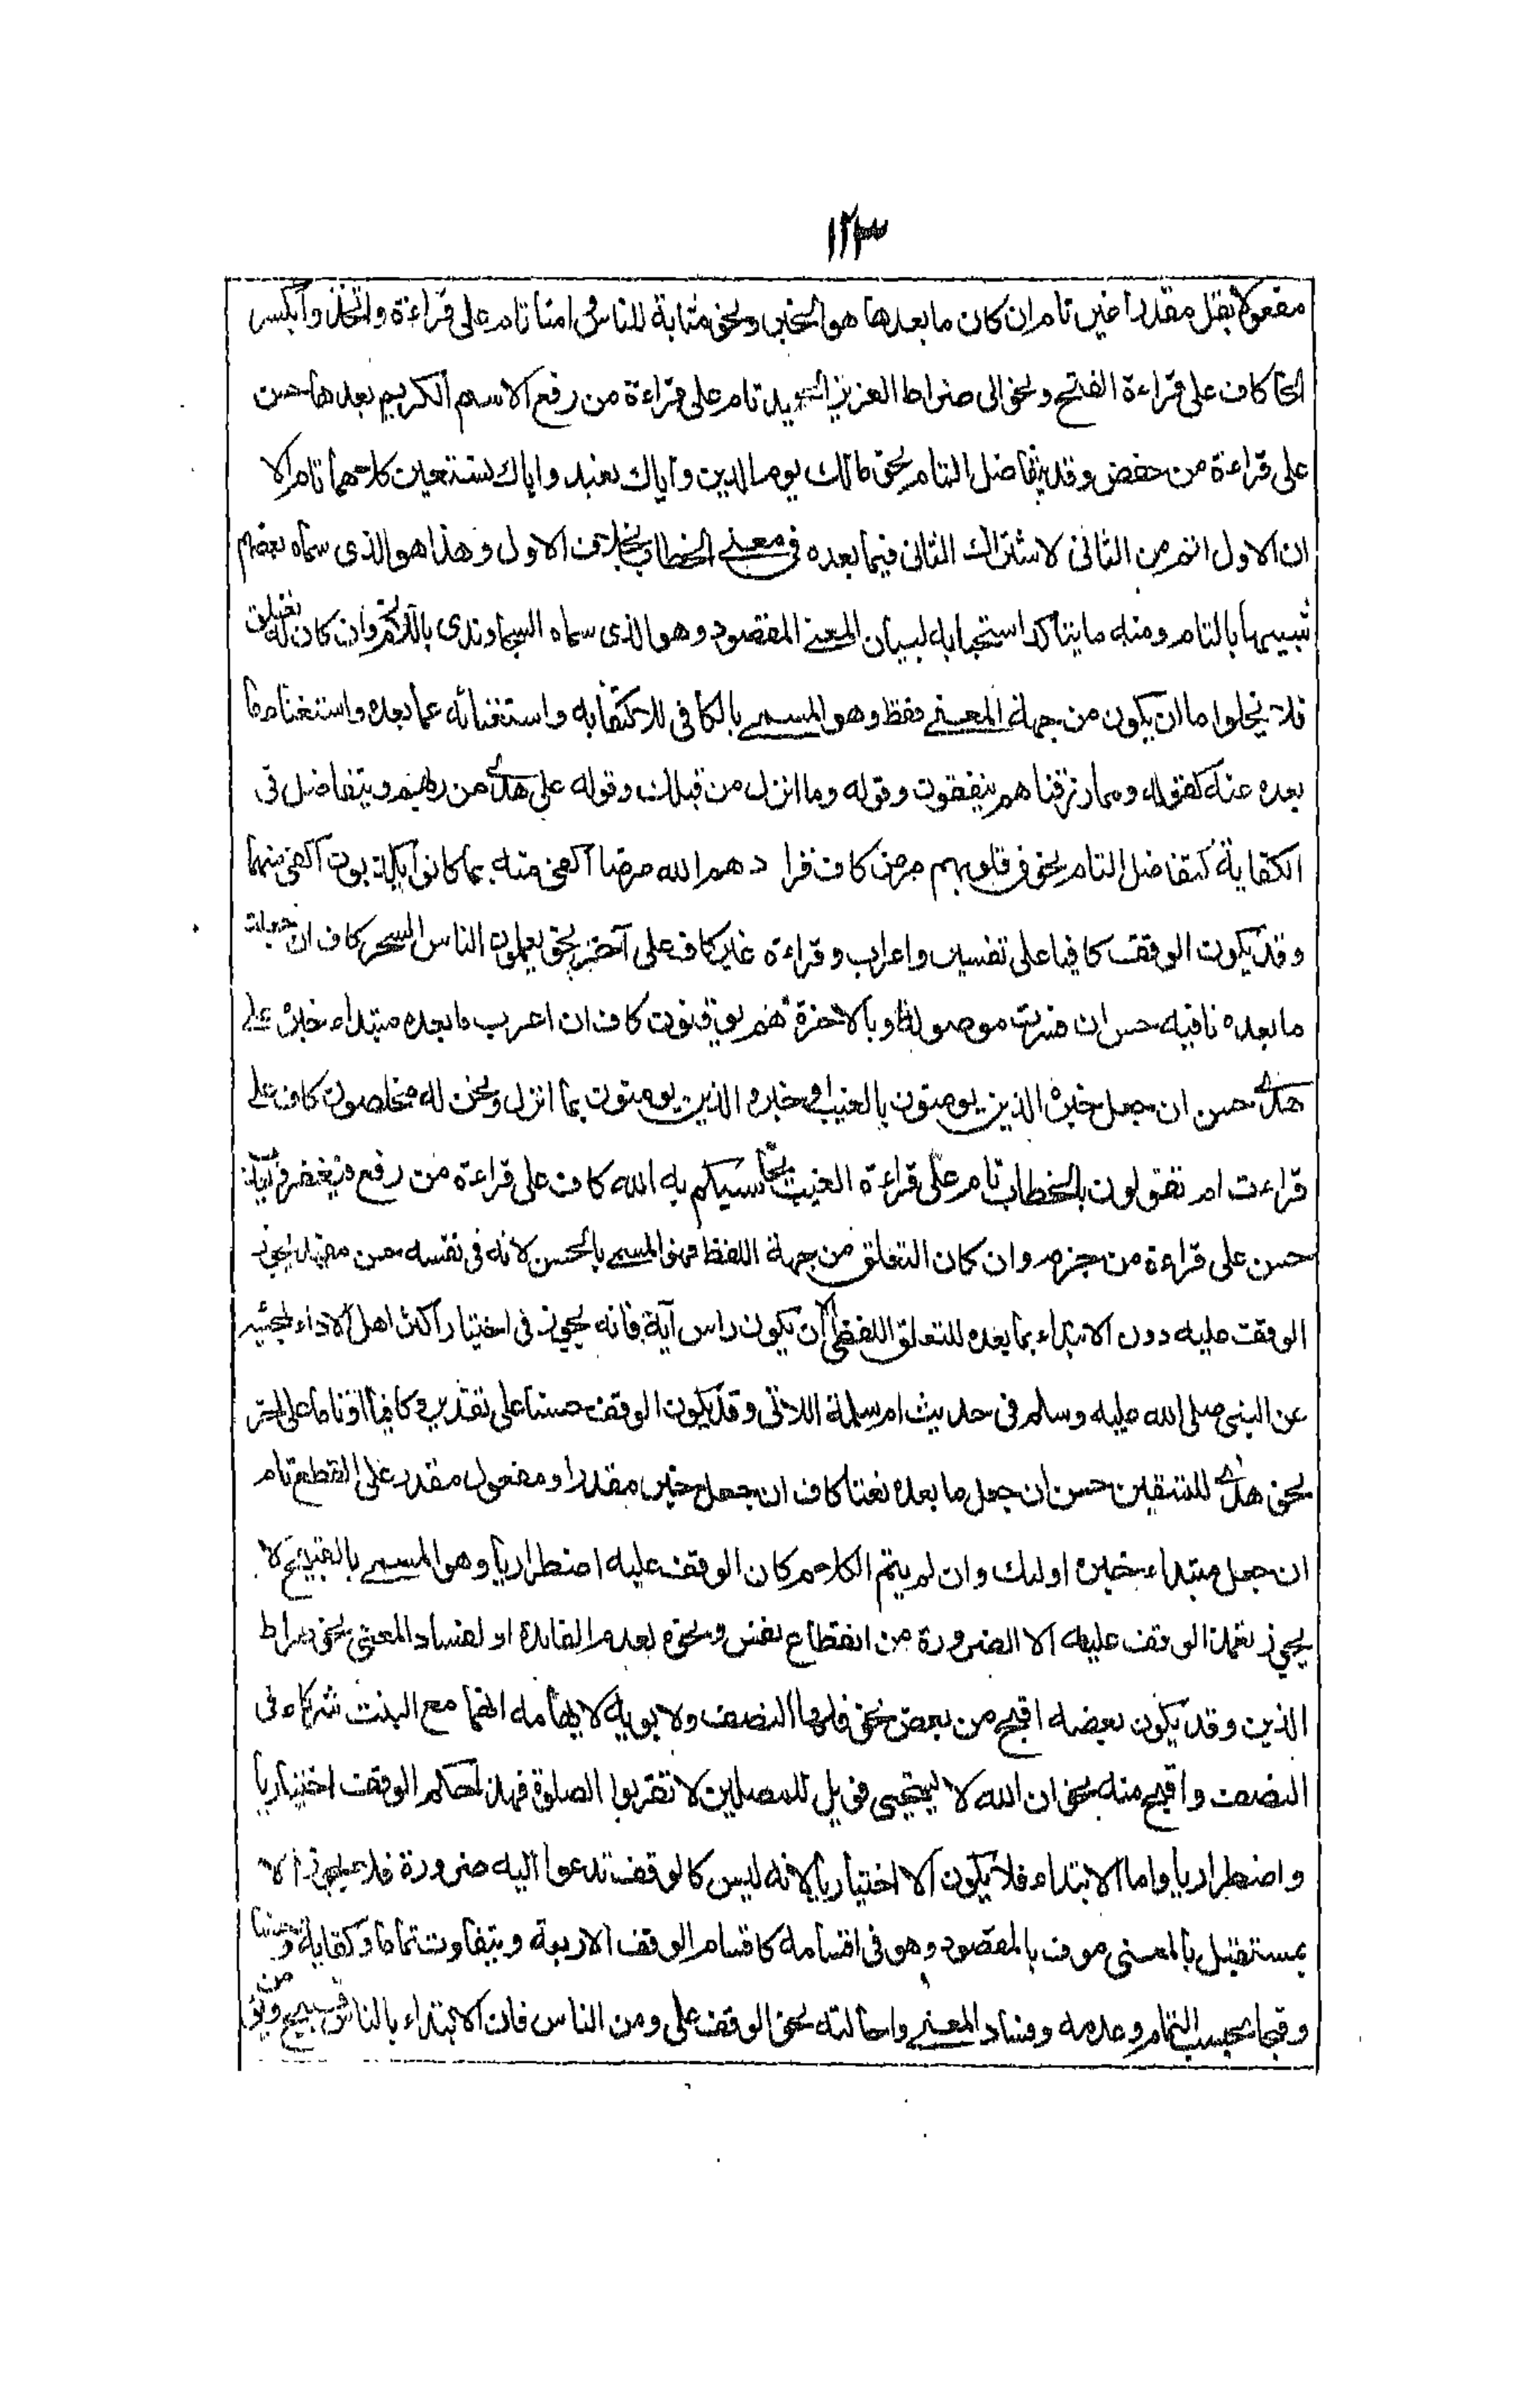 ١٢٣
مفعولا بفعل مقدر اخير تام ان كان ما بعدها هو الخبر ونحو مثابة للناس وامنا تام على قراءة واتخذوا بكسر
الخا كاف على قراءة الفتح ونحو الى صراط العزيز الحميد تام على قراءة من رفع الاسم الكريم بعدها حسن
على قراءة من خفض وقد يتفاضل التام نحو مالك يوم الدين واياك نعبد واياك نستعين كلاهما تام الا
ان الاول اتم من الثانى لاشتراك الثانى فيما بعده فى معنى الخطاب بخلاف الاول وهذا هو الذى سماه بعضهم
شبيها بالتام ومنه ما يتاكد استحبابه لبيان المعنى المقصود وهو الذى سماه السجاوندى باللازم وان كان له تعلق
فلا يخلوا ما ان يكون من جهة المعنى فقط وهو المسمى بالكافى للاكتفا به واستغنائه عما بعده واستغنا ما
بعده عنه كقوله ومما رزقناهم ينفقون وقوله وما انزل من قبلك وقوله على هدى من ربهم ويتفاضل فى
الكفاية كتفاضل التام نحو فى قلوبهم مرض كاف فزادهم الله مرضا اكفى منه بما كانوا يكذبون اكفى منهما
وقد يكون الوقف كافيا على تفسير واعراب وقراءة غير كاف على آخر نحو يعلمون الناس السحر كاف ان جعلت
ما بعده نافيه حسن ان فسرت موصولة وبالاخرة هم يوقنون كاف ان اعرب ما بعده مبتداء خبره على
هدى حسن ان جعل خبره الذين يومنون بالغيب او خبره الذين يومنون بما انزل ونحن له مخلصون كاف على
قراءت ام تقولون بالخطاب تام على قراءة الغيب يحاسبكم به الله كاف على قراءة من رفع فيغفر
حسن على قراءة من جزم وان كان التعلق من جهة اللفظ فهو المسمى بالحسن لانه فى نفسه حسن مفيد يجوز
الوقف عليه دون الابتداء بما بعده للتعلق اللفظى الا ان يكون راس آية فانه يجوز فى اختيار اكثر اهل الاداء لمجئيه
عن النبى صلى الله عليه وسلم فى حديث ام سلمة الاتى وقد يكون الوقف حسنا على تقدير وكافيا او تاما على اخر
نحو هدى للمتقين حسن ان جعل ما بعده نعتا كاف ان جعل خبر مقدر او مفعول مقدر على القطع تام
ان جعل مبتداء خبره اولئك وان لم يتم الكلام كان الوقف عليه اضطراريا وهو المسمى بالقبيح لا
يجوز تعمد الوقف عليه الا لضرورة من انقطاع نفس ونحوه لعدم الفايدة او لفساد المعنى نحو صراط
الذين وقد يكون بعضه اقبح من بعض نحو فلها النصف ولابويه لايهامه انهما مع البنت شركاء فى
النصف واقبح منه نحو ان الله لا يستحيى فويل للمصلين لا تقربوا الصلوة فهذا حكم الوقف اختياريا
واضطراريا واما الابتداء فلا يكون الا اختياريا لانه ليس كالوقف تدعوا اليه ضرورة فلا يجوز الا
بمستقبل بالمعنى موف بالمقصود وهو فى اقسامه كاقسام الوقف الاربعة ويتفاوت تماما وكفاية وحسنا
وقبحا بحسب التمام وعدمه وفساد المعنى واحالته نحو الوقف على ومن الناس فان الابتداء بالناس قبيح